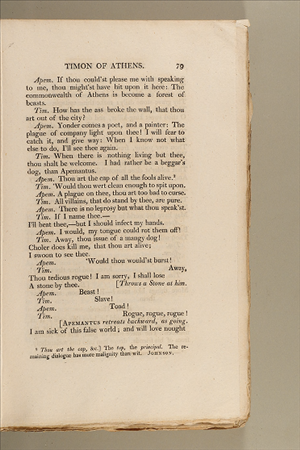 TIMON OF ATHENS. 79
Apem. If thou could'st please me with speaking
to me, thou might'st have hit upon it here: The
commonwealth of Athens is become a forest of
beasts.
Tim. How has the ass broke the wall, that thou
art out of the city?
Apem. Yonder comes a poet, and a painter: The
plague of company light upon thee! I will fear to
catch it, and give way: When I know not what
else to do, I'll see thee again.
Tim. When there is nothing living but thee,
thou shalt be welcome. I had rather be a beggar's
dog, than Apemantus.
Apem. Thou art the cap of all the fools alive.⁹
Tim. 'Would thou wert clean enough to spit upon.
Apem. A plague on thee, thou art too bad to curse.
Tim. All villains, that do stand by thee, are pure.
Apem. There is no leprosy but what thou speak'st.
Tim. If I name thee.—
I'll beat thee,—but I should infect my hands.
Apem. I would, my tongue could rot them off!
Tim. Away, thou issue of a mangy dog!
Choler does kill me, that thou art alive;
I swoon to see thee.
Apem. 'Would thou would'st burst!
Tim. Away,
Thou tedious rogue! I am sorry, I shall lose
A stone by thee. [Throws a Stone at him.
Apem. Beast!
Tim. Slave!
Apem. Toad!
Tim. Rogue, rogue, rogue!
[APEMANTUS retreats backward, as going.
I am sick of this false world; and will love nought
⁹ Thou art the cap, &c.] The top, the principal. The re-
maining dialogue has more malignity than wit. JOHNSON.